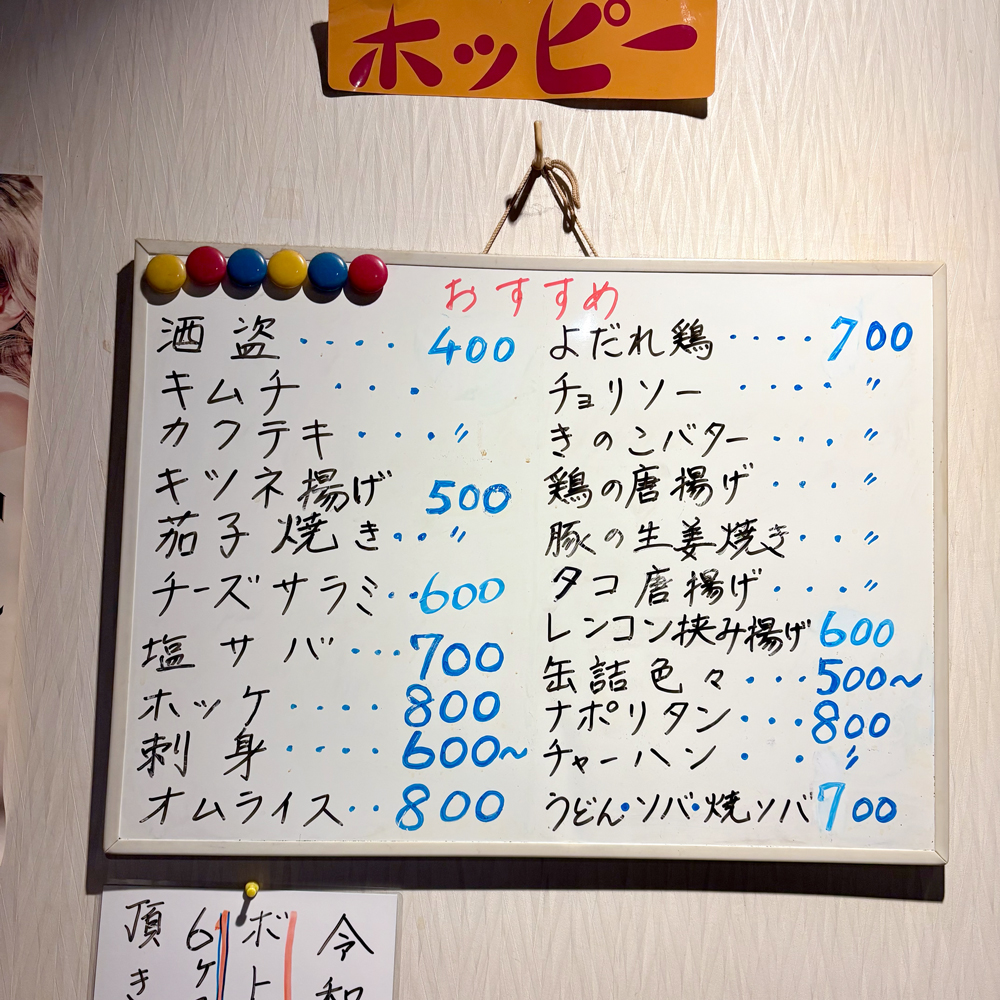 ホッピー
おすすめ
酒盗････400
キムチ･･･
カクテキ････〃
キツネ揚げ 500
茄子焼き･･〃
チーズサラミ･･600
塩サバ･･･700
ホッケ････800
刺身････600~
オムライス･･800
よだれ鶏････700
チョリソー････〃
きのこバター･･･〃
鶏の唐揚げ･･･〃
豚の生姜焼き･･〃
タコ唐揚げ･･･〃
レンコン挟み揚げ 600
缶詰色々･･･500~
ナポリタン･･･800
チャーハン･･〃
うどん・ソバ・焼ソバ 700
令和
ボト
6ケ
頂き